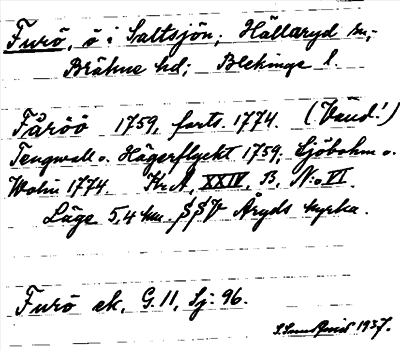 Furö, ö i Saltsjön; Hällaryd sn;
Bräkne hd; Blekinge l.
Fåröö 1759, forts. 1774. (Vänd!)
Tengwall o. Hägerflyckt 1759, Sjöbohm o.
Wohn 1774. Kr. A, XXIV, B, N:o VI.
Läge 5,4 km. SSV Åryds kyrka.
Furö ek, G. 11, Sj: 96.
1937.